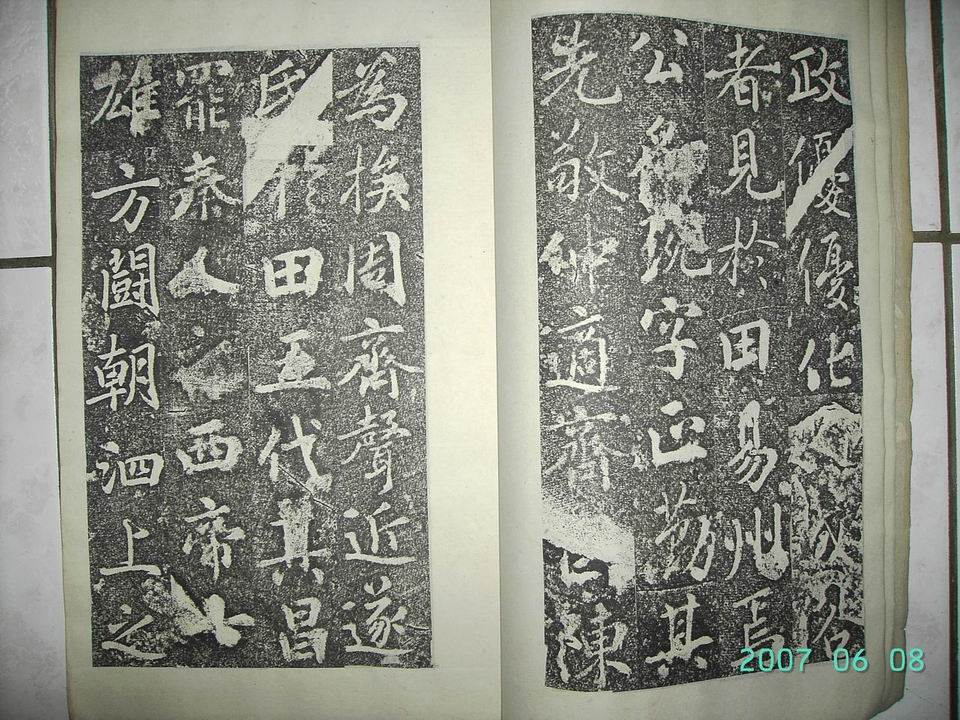 政優優化
者見於田易州焉
公諱琬字正勤其
先敬仲適齊陳
為族周齊聲近遂
氏於田五代其昌
罷秦人之西帝七
雄方闘朝泗上之
2007 06 08